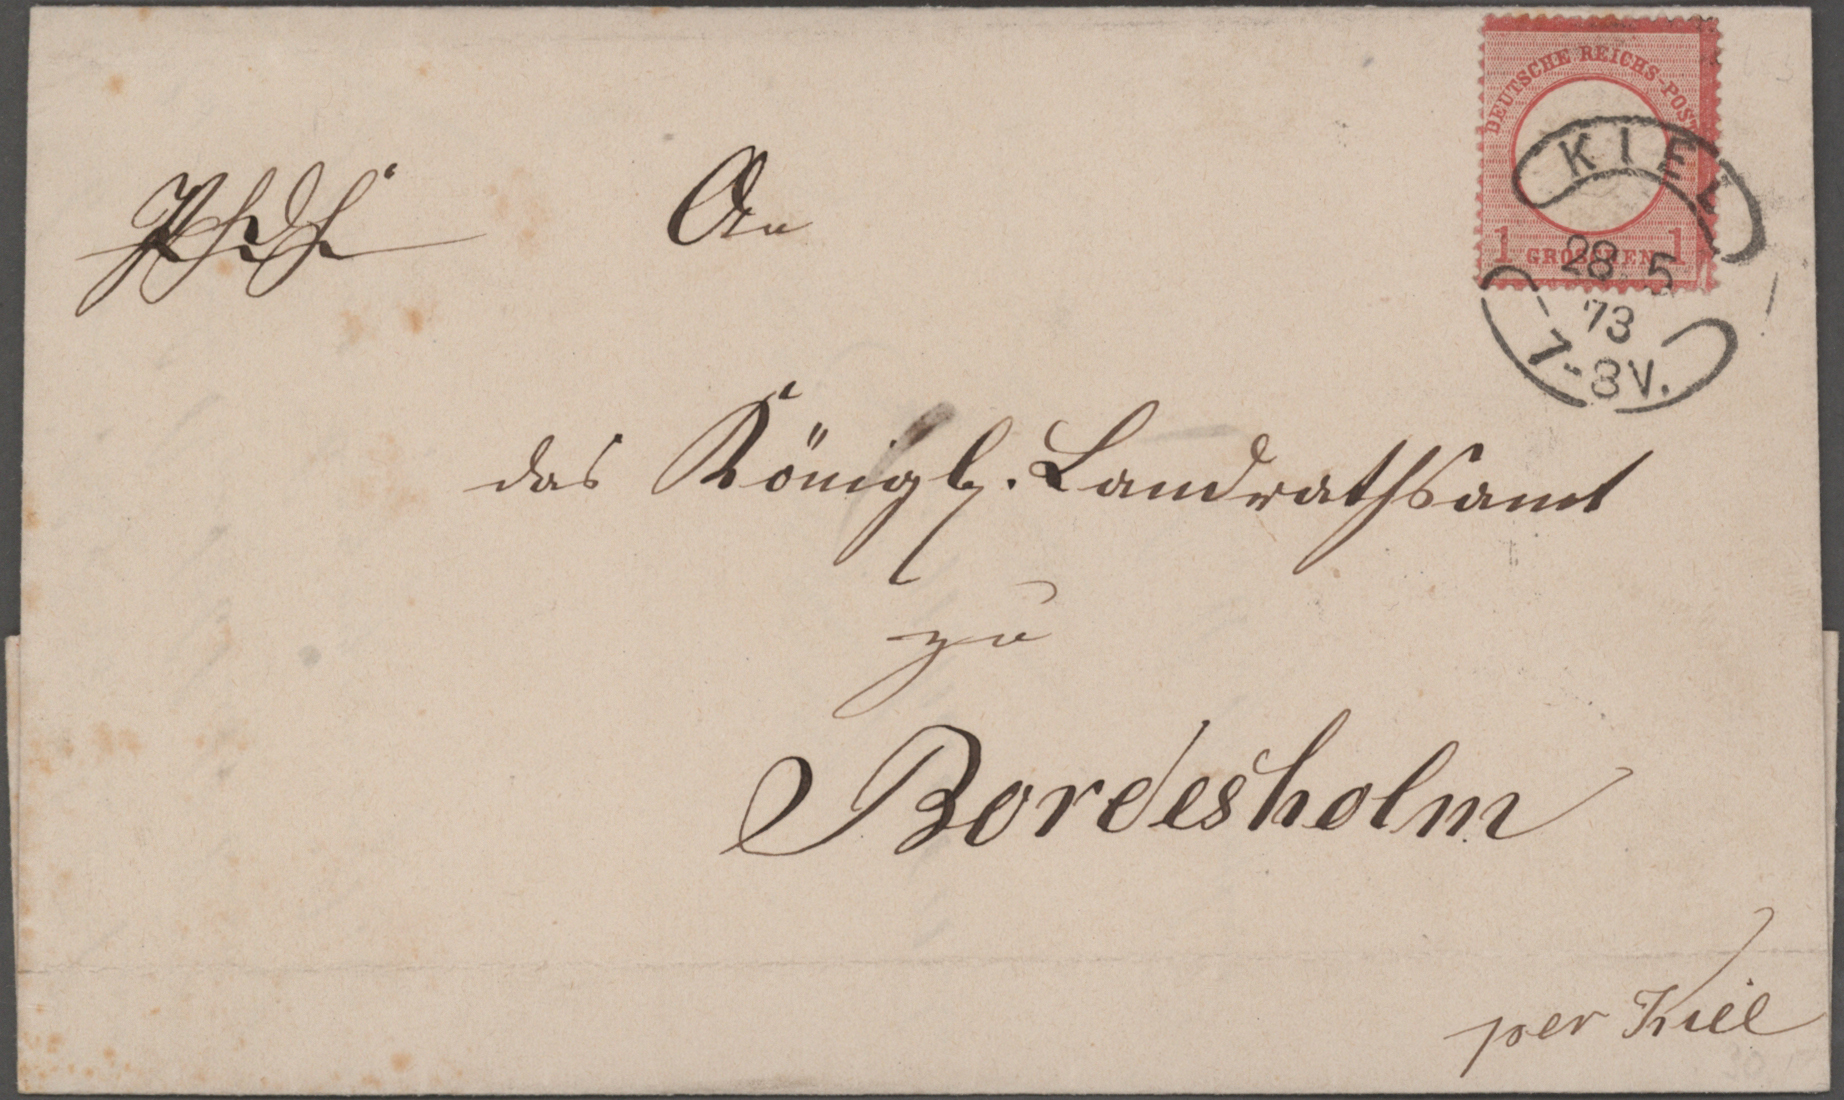 DEUTSCHE REICHS-POST
1 GROSCHEN 1
KIEL
28 5
73
7-8V.
An
das Königl. Landrathsamt
zu
Bordesholm
per Kiel